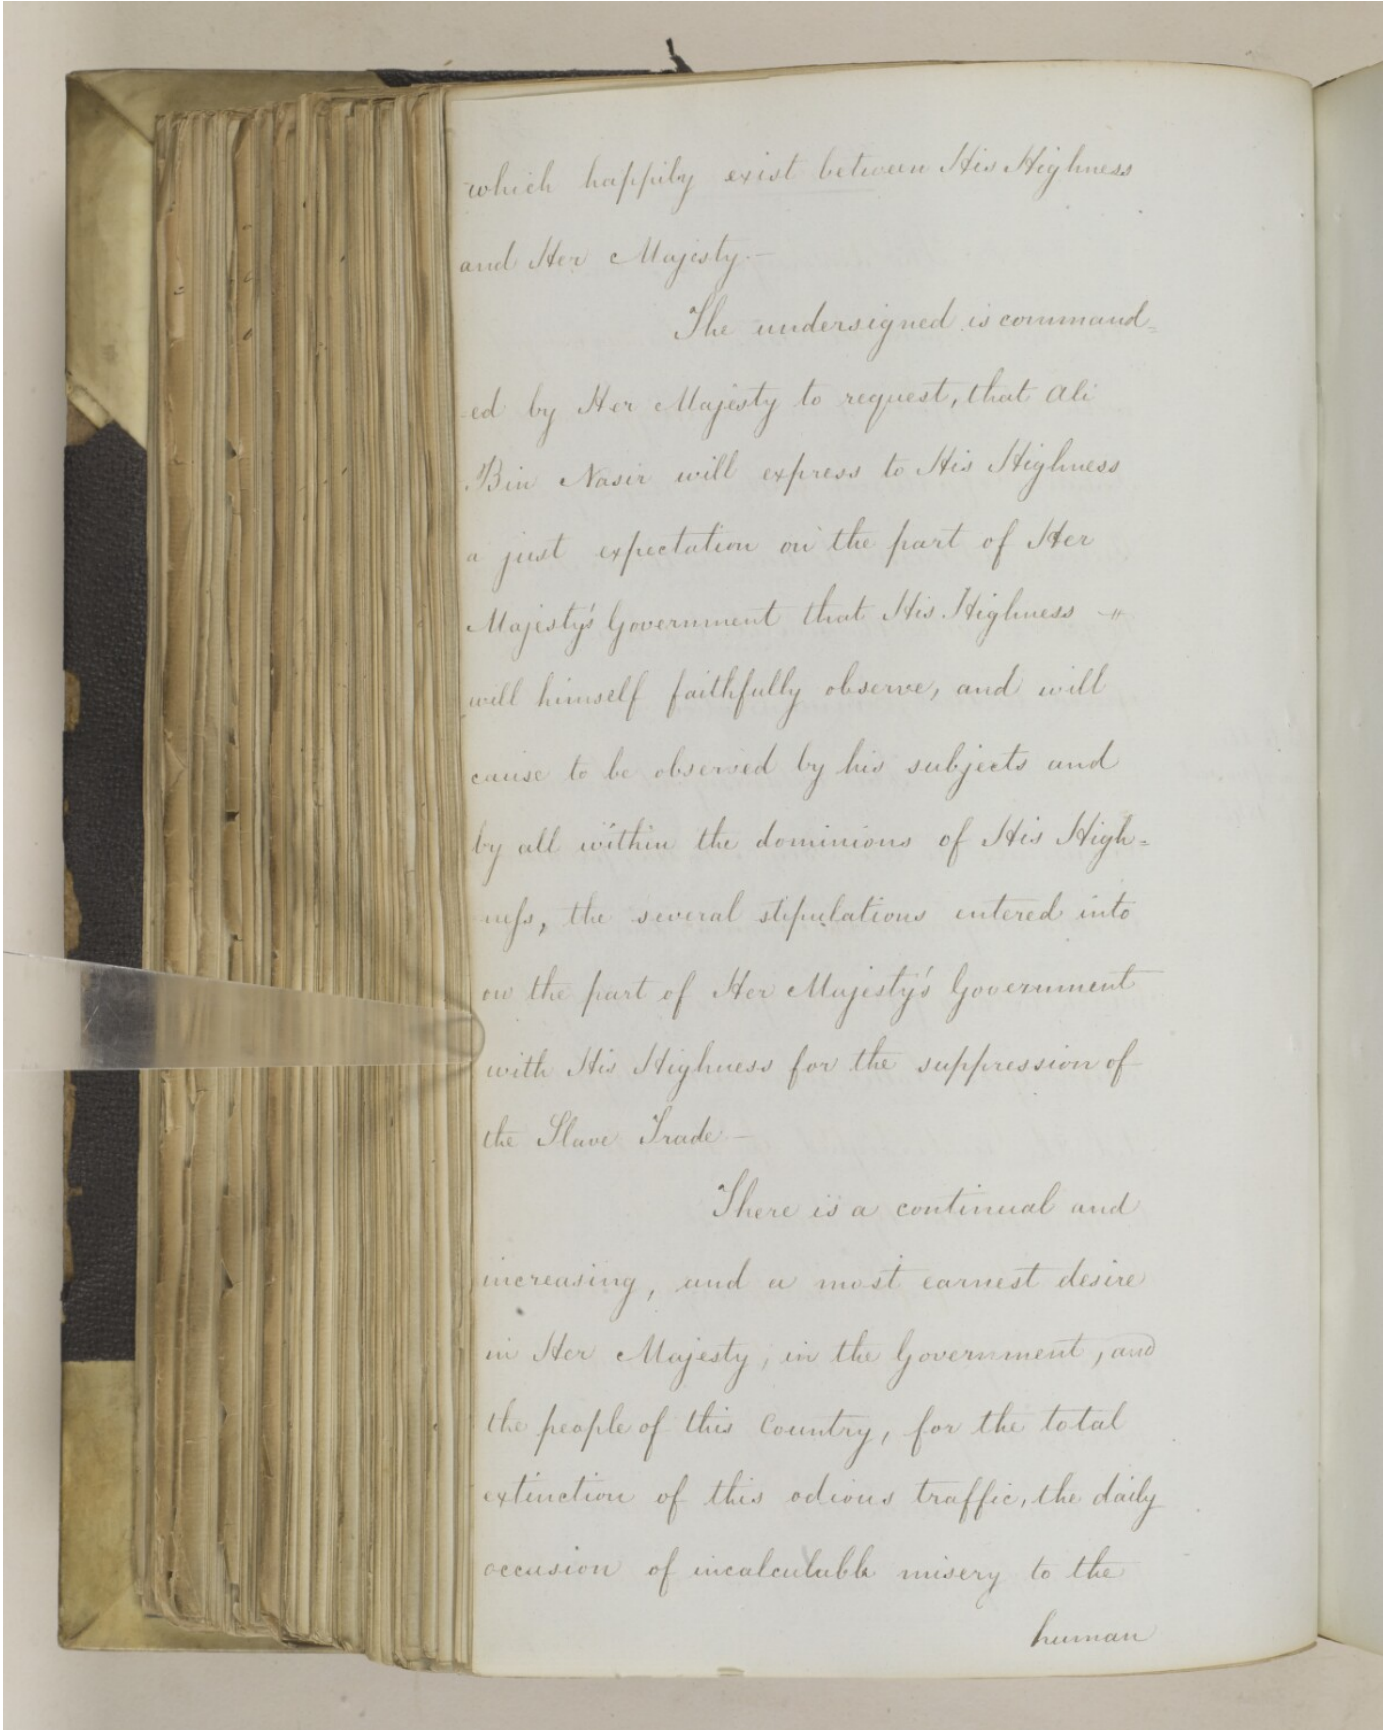 which happily exist between His Highness
and Her Majesty.—
The undersigned is command=
-ed by Her Majesty to request, that Ali
Bin Nasir will express to His Highness
a just expectation on the part of Her
Majesty's Government that His Highness —"
will himself faithfully observe, and will
cause to be observed by his subjects and
by all within the dominions of His High=
-neſs, the several stipulations entered into
on the part of Her Majesty's Government
with His Highness for the suppression of
the Slave Trade —
There is a continual and
increasing, and a most earnest desire
in Her Majesty, in the Government, and
the people of this Country, for the total
extinction of this odious traffic, the daily
occasion of incalculable misery to the
human